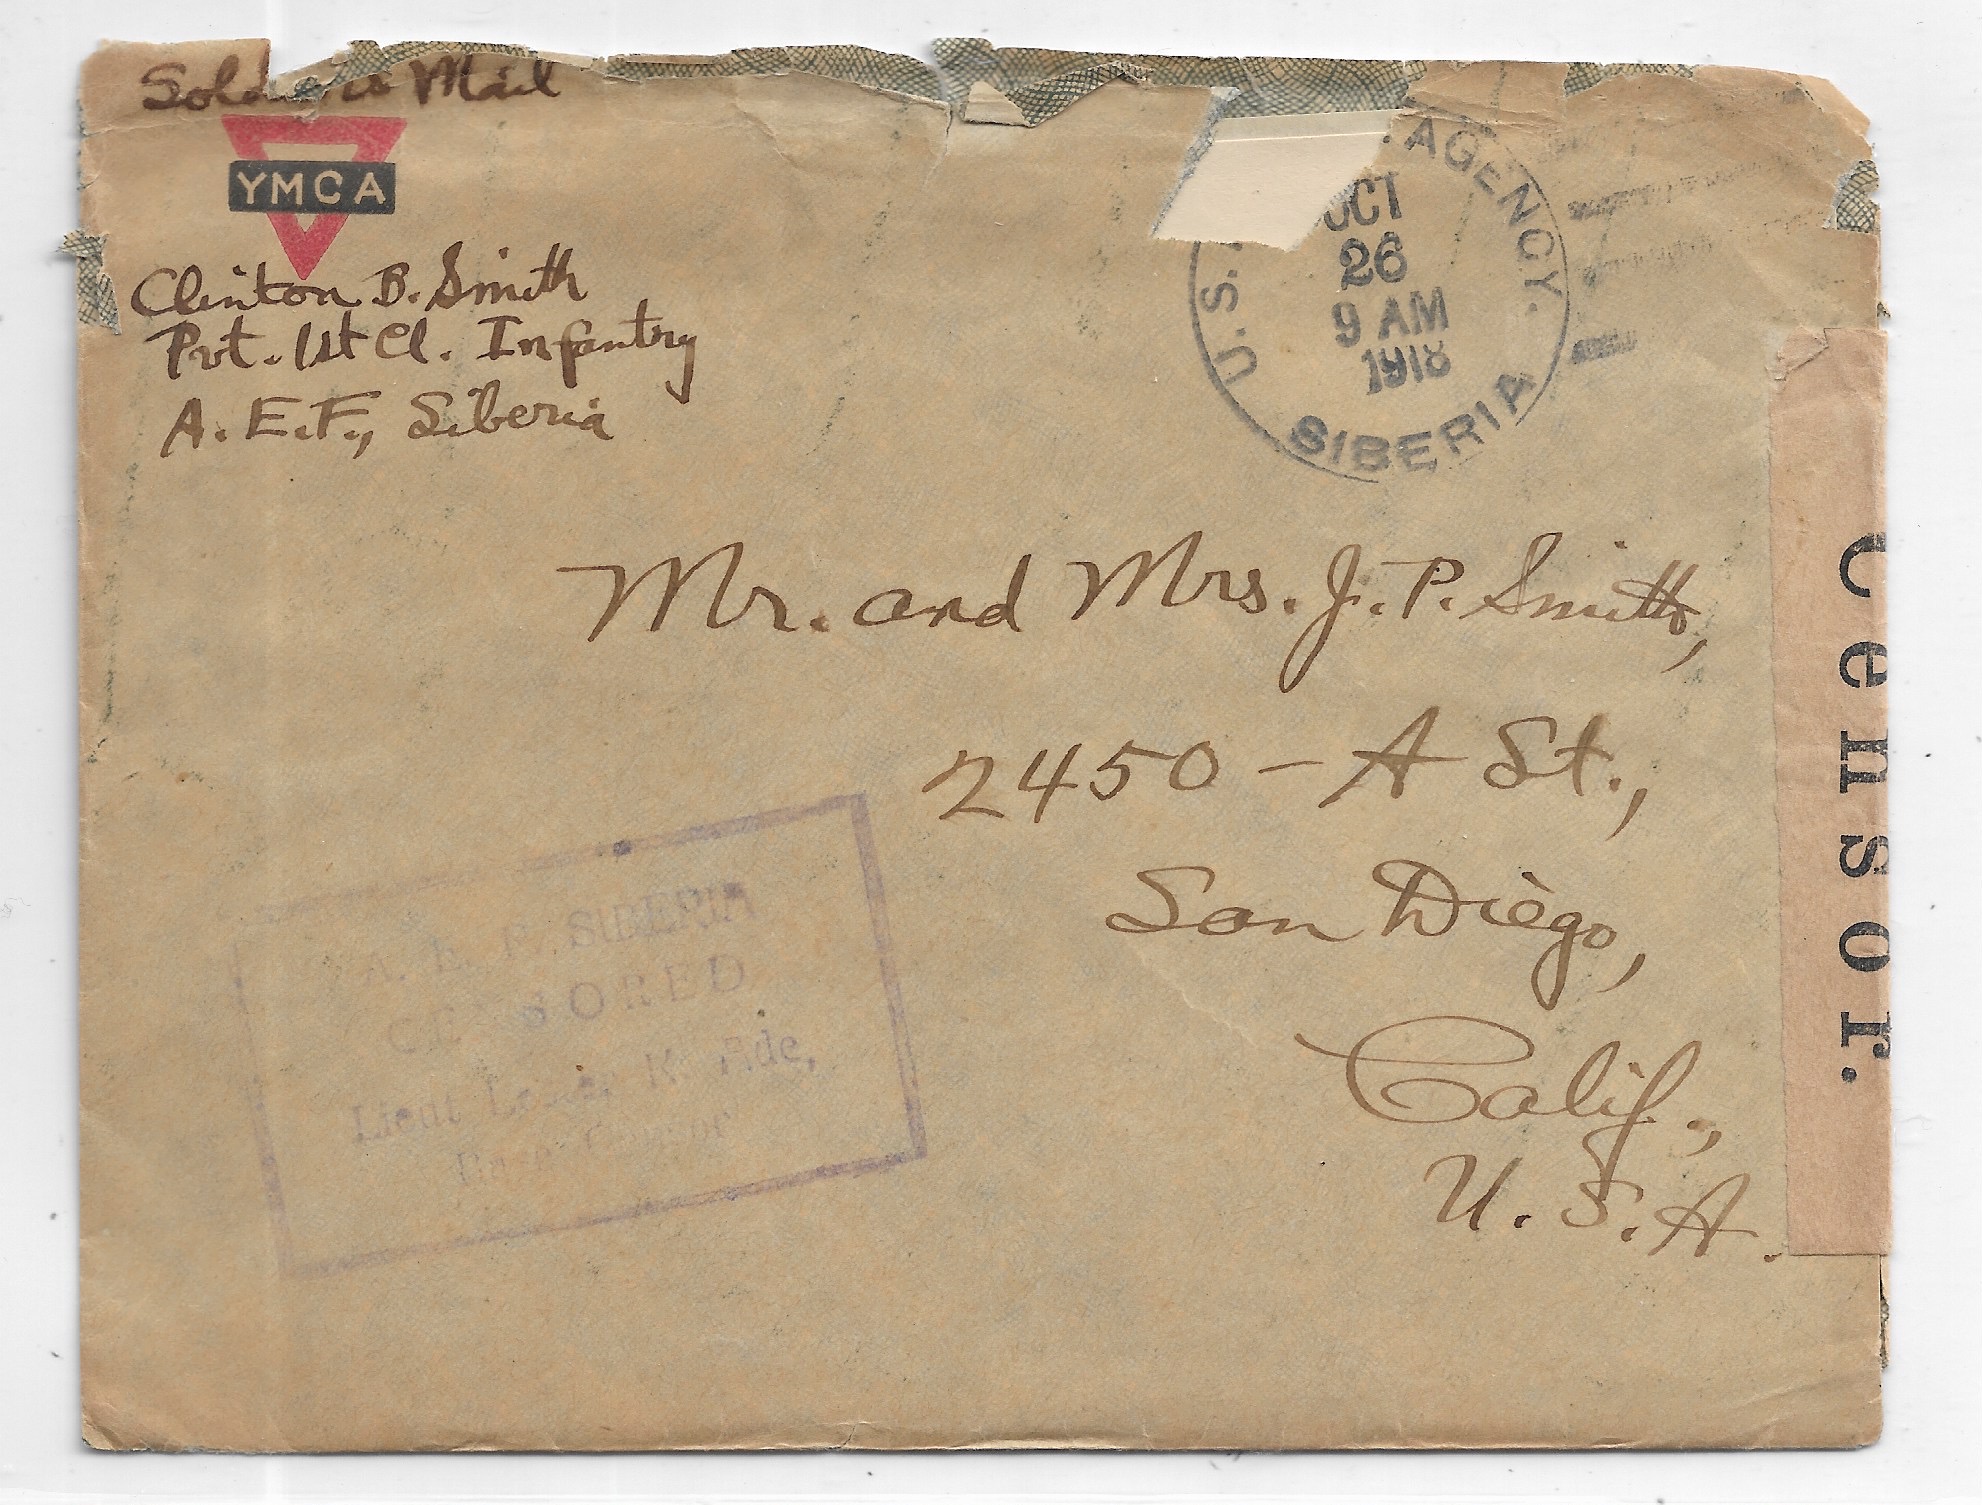 Soldiers Mail
YMCA
Clinton B. Smith
Pvt. 1st Cl. Infantry
A.E.F., Siberia
U.S. AGENCY.
OCT
26
9 AM
1918
SIBERIA
Mr. and Mrs. J. P. Smith,
2450 - A St.,
San Diego,
Calif.,
U.S.A.
A. E. F. SIBERIA
CENSORED
Lieut K. Ade,
Base Censor
Censor.